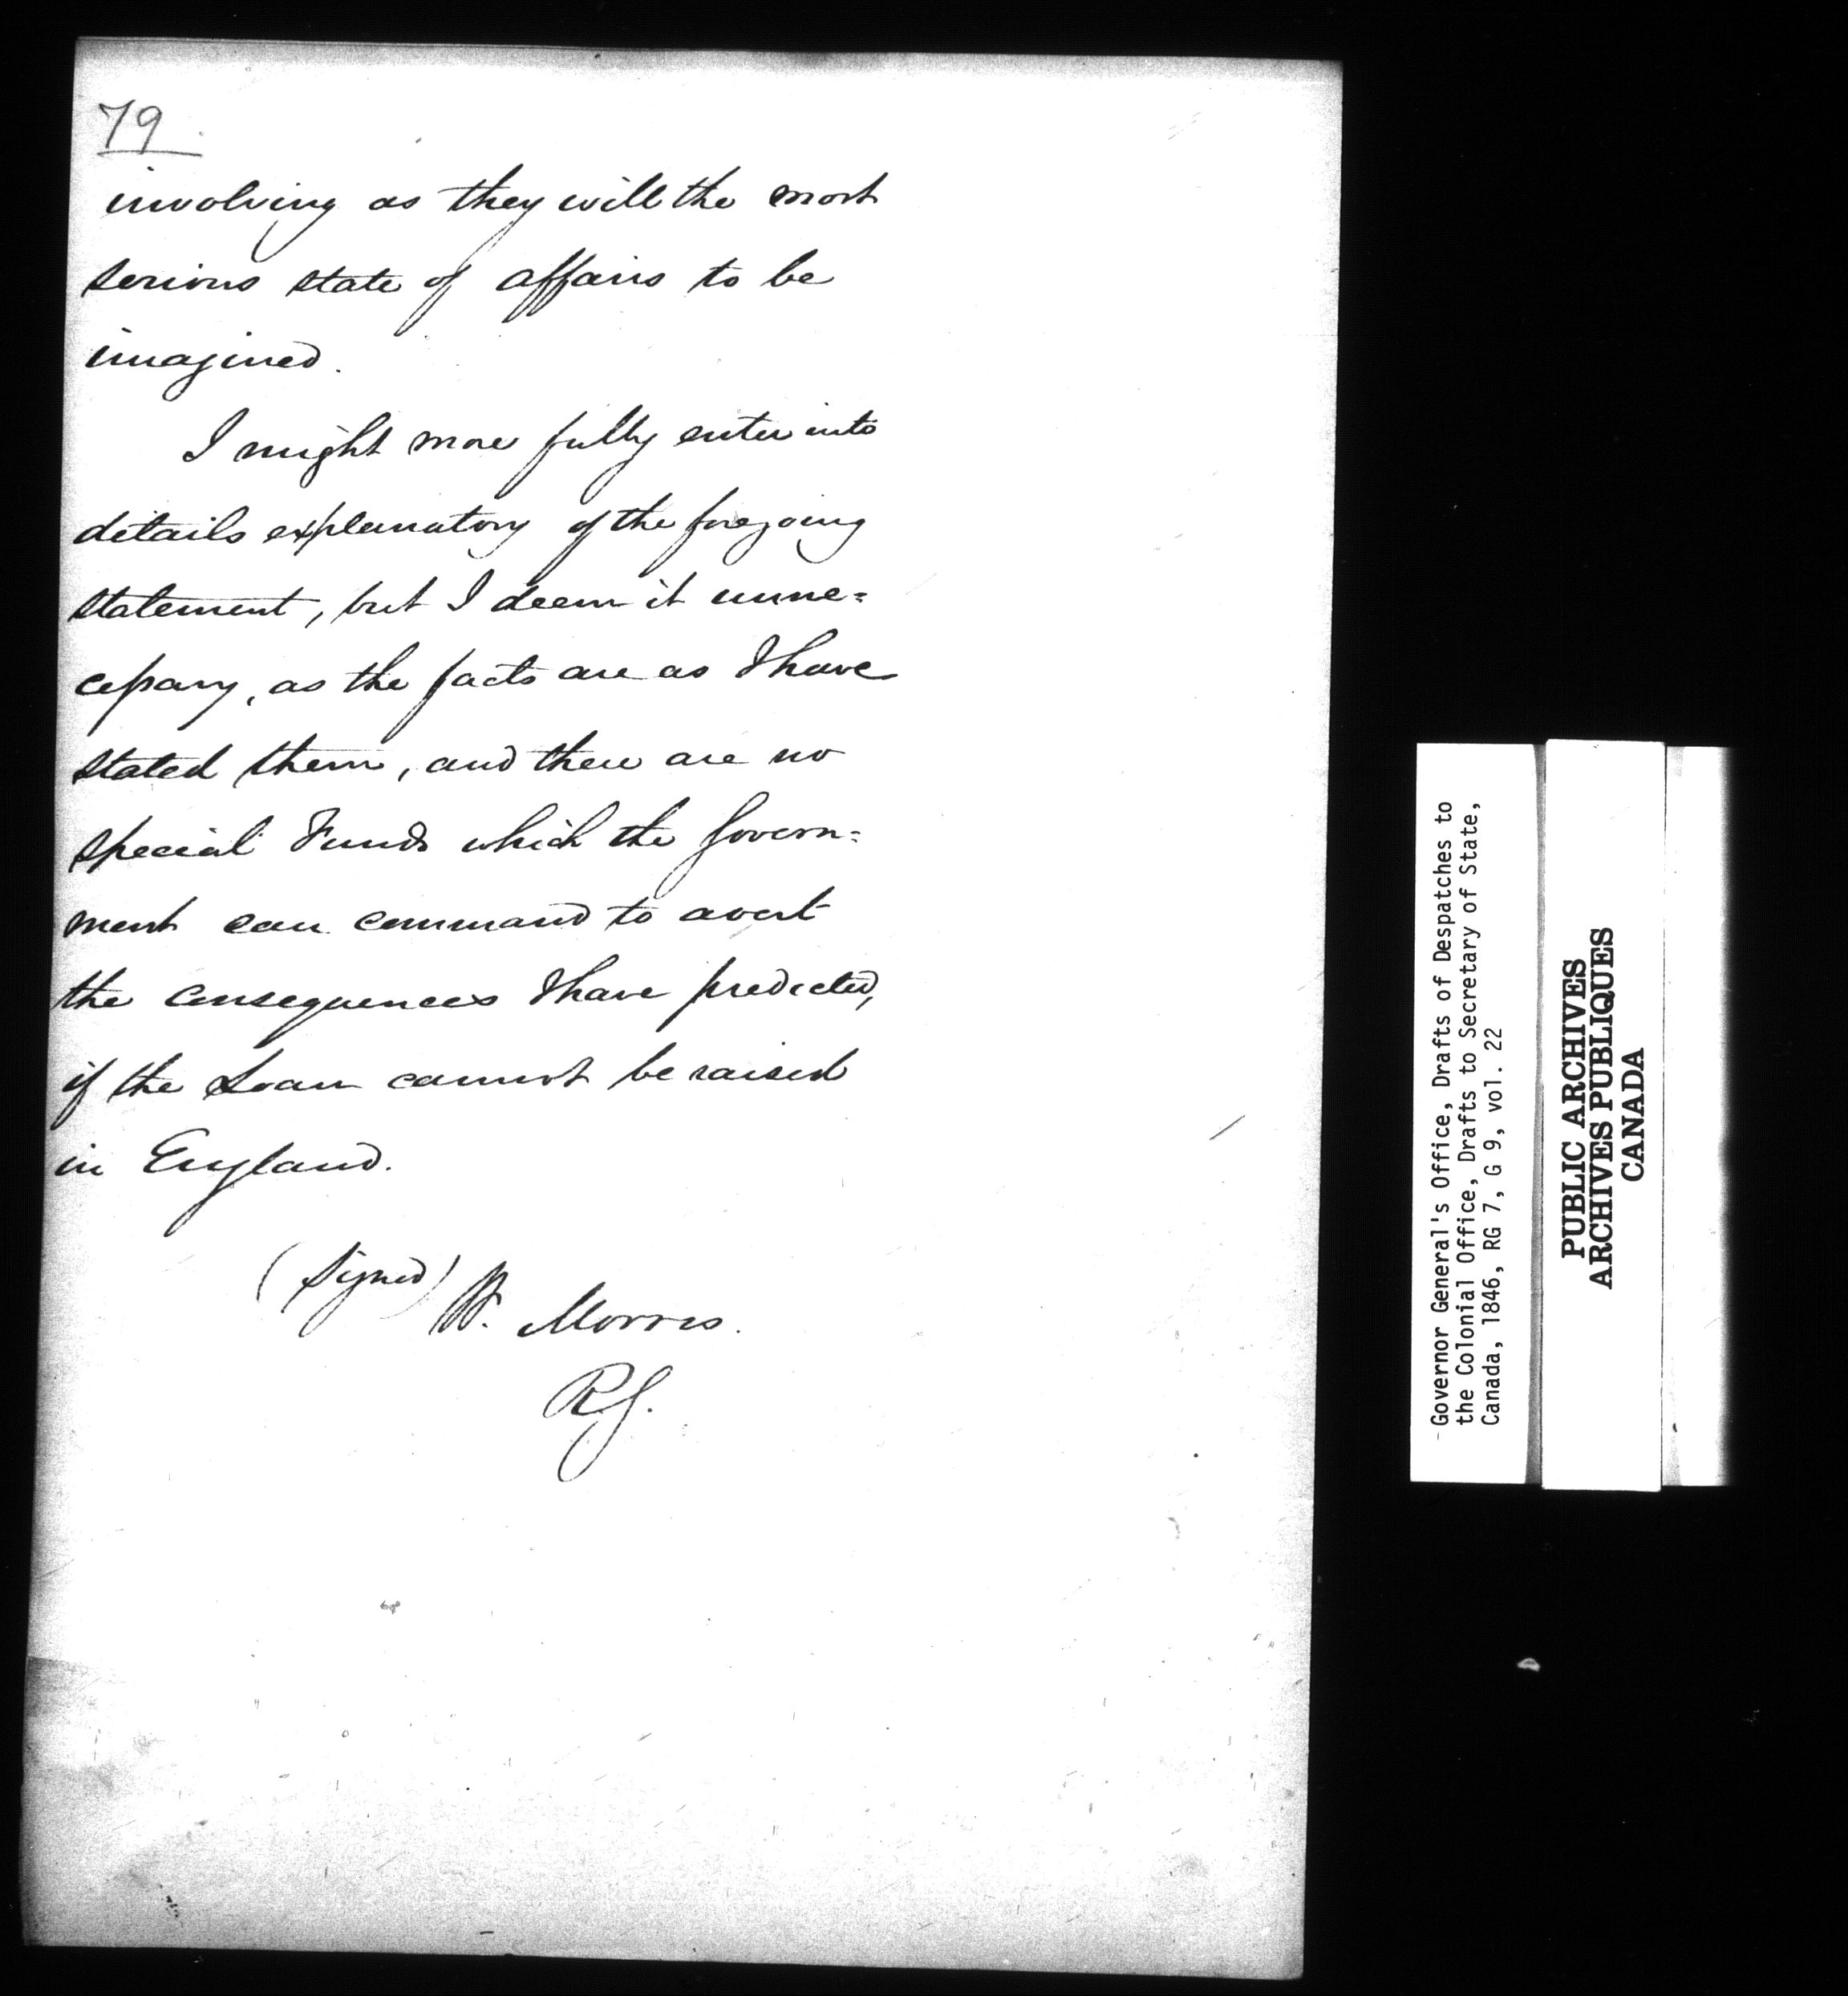 79
involving as they will the most
serious state of affairs to be
imagined.
I might more fully enter into
details explanatory of the foregoing
statement, but I deem it unne=
cessary, as the facts are as I have
stated them, and there are no
special Funds which the Govern=
ment can command to avert
the consequences I have predicted,
if the Loan cannot be raised
in England.
(Signed) W. Morris.
R.G.
Governor General's Office, Drafts of Despatches to
the Colonial Office, Drafts to Secretary of State,
Canada, 1846, RG 7, G 9, vol. 22
PUBLIC ARCHIVES
ARCHIVES PUBLIQUES
CANADA